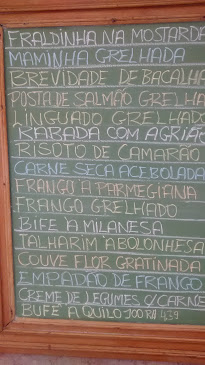 FRALDINHA NA MOSTARDA
MAMINHA GRELHADA
BREVIDADE DE BACALHA
POSTA DE SALMÃO GRELHA
LINGUADO GRELHADO
RABADA COM AGRIÃO
RISOTO DE CAMARÃO
CARNE SECA ACEBOLADA
FRANGO À PARMEGIANA
FRANGO GRELHADO
BIFE À MILANESA
TALHARIM À BOLONHESA
COUVE FLOR GRATINADA
EMPADÃO DE FRANGO
CREME DE LEGUMES C/CARNE
BUFÊ A QUILO 100 4,39